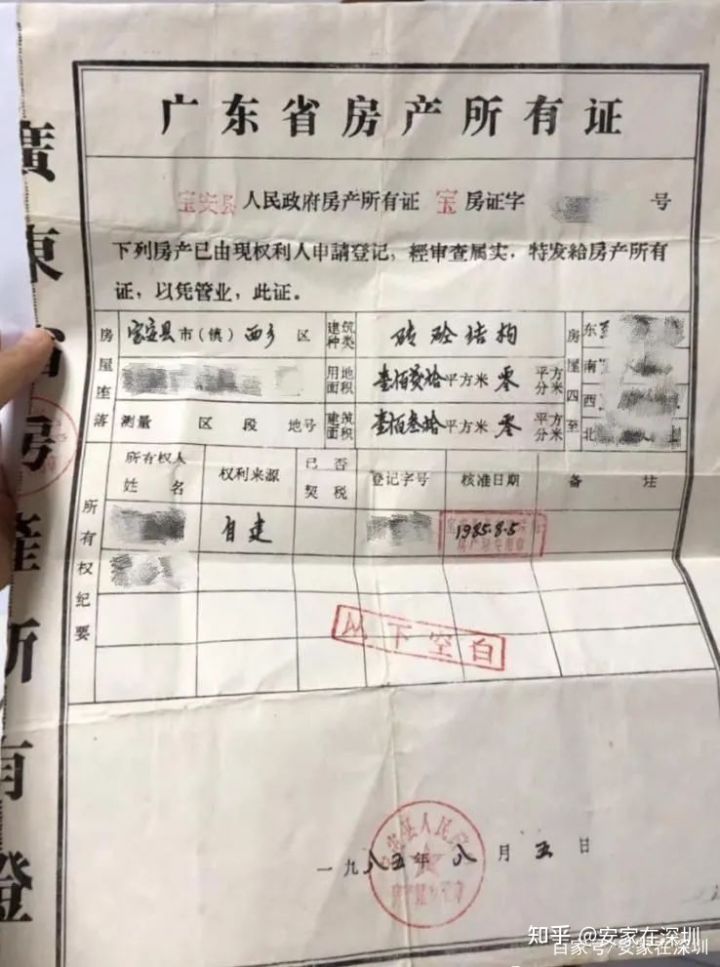 广东省房产所有证
宝安县人民政府房产所有证 宝 房证字 号
下列房产已由现权利人申請登记，經审查属实，特发給房产所有
证，以凭管业，此证。
房屋座落 宝安县市（镇）西乡 区 建筑种类 砖砼结构 房屋四至 东
用地面积 壹佰贰拾平方米 零 平方分米 南
西
测量 区 段 地号 建筑面积 壹佰叁拾平方米 零 平方分米 北
所有权纪要 所有权人姓名 权利来源 已否契税 登记字号 核准日期 备注
自建 1985.8.5
以下空白
一九八五年八月五日
廣東省房產所有證
知乎 @安家在深圳
百家号/安家在深圳